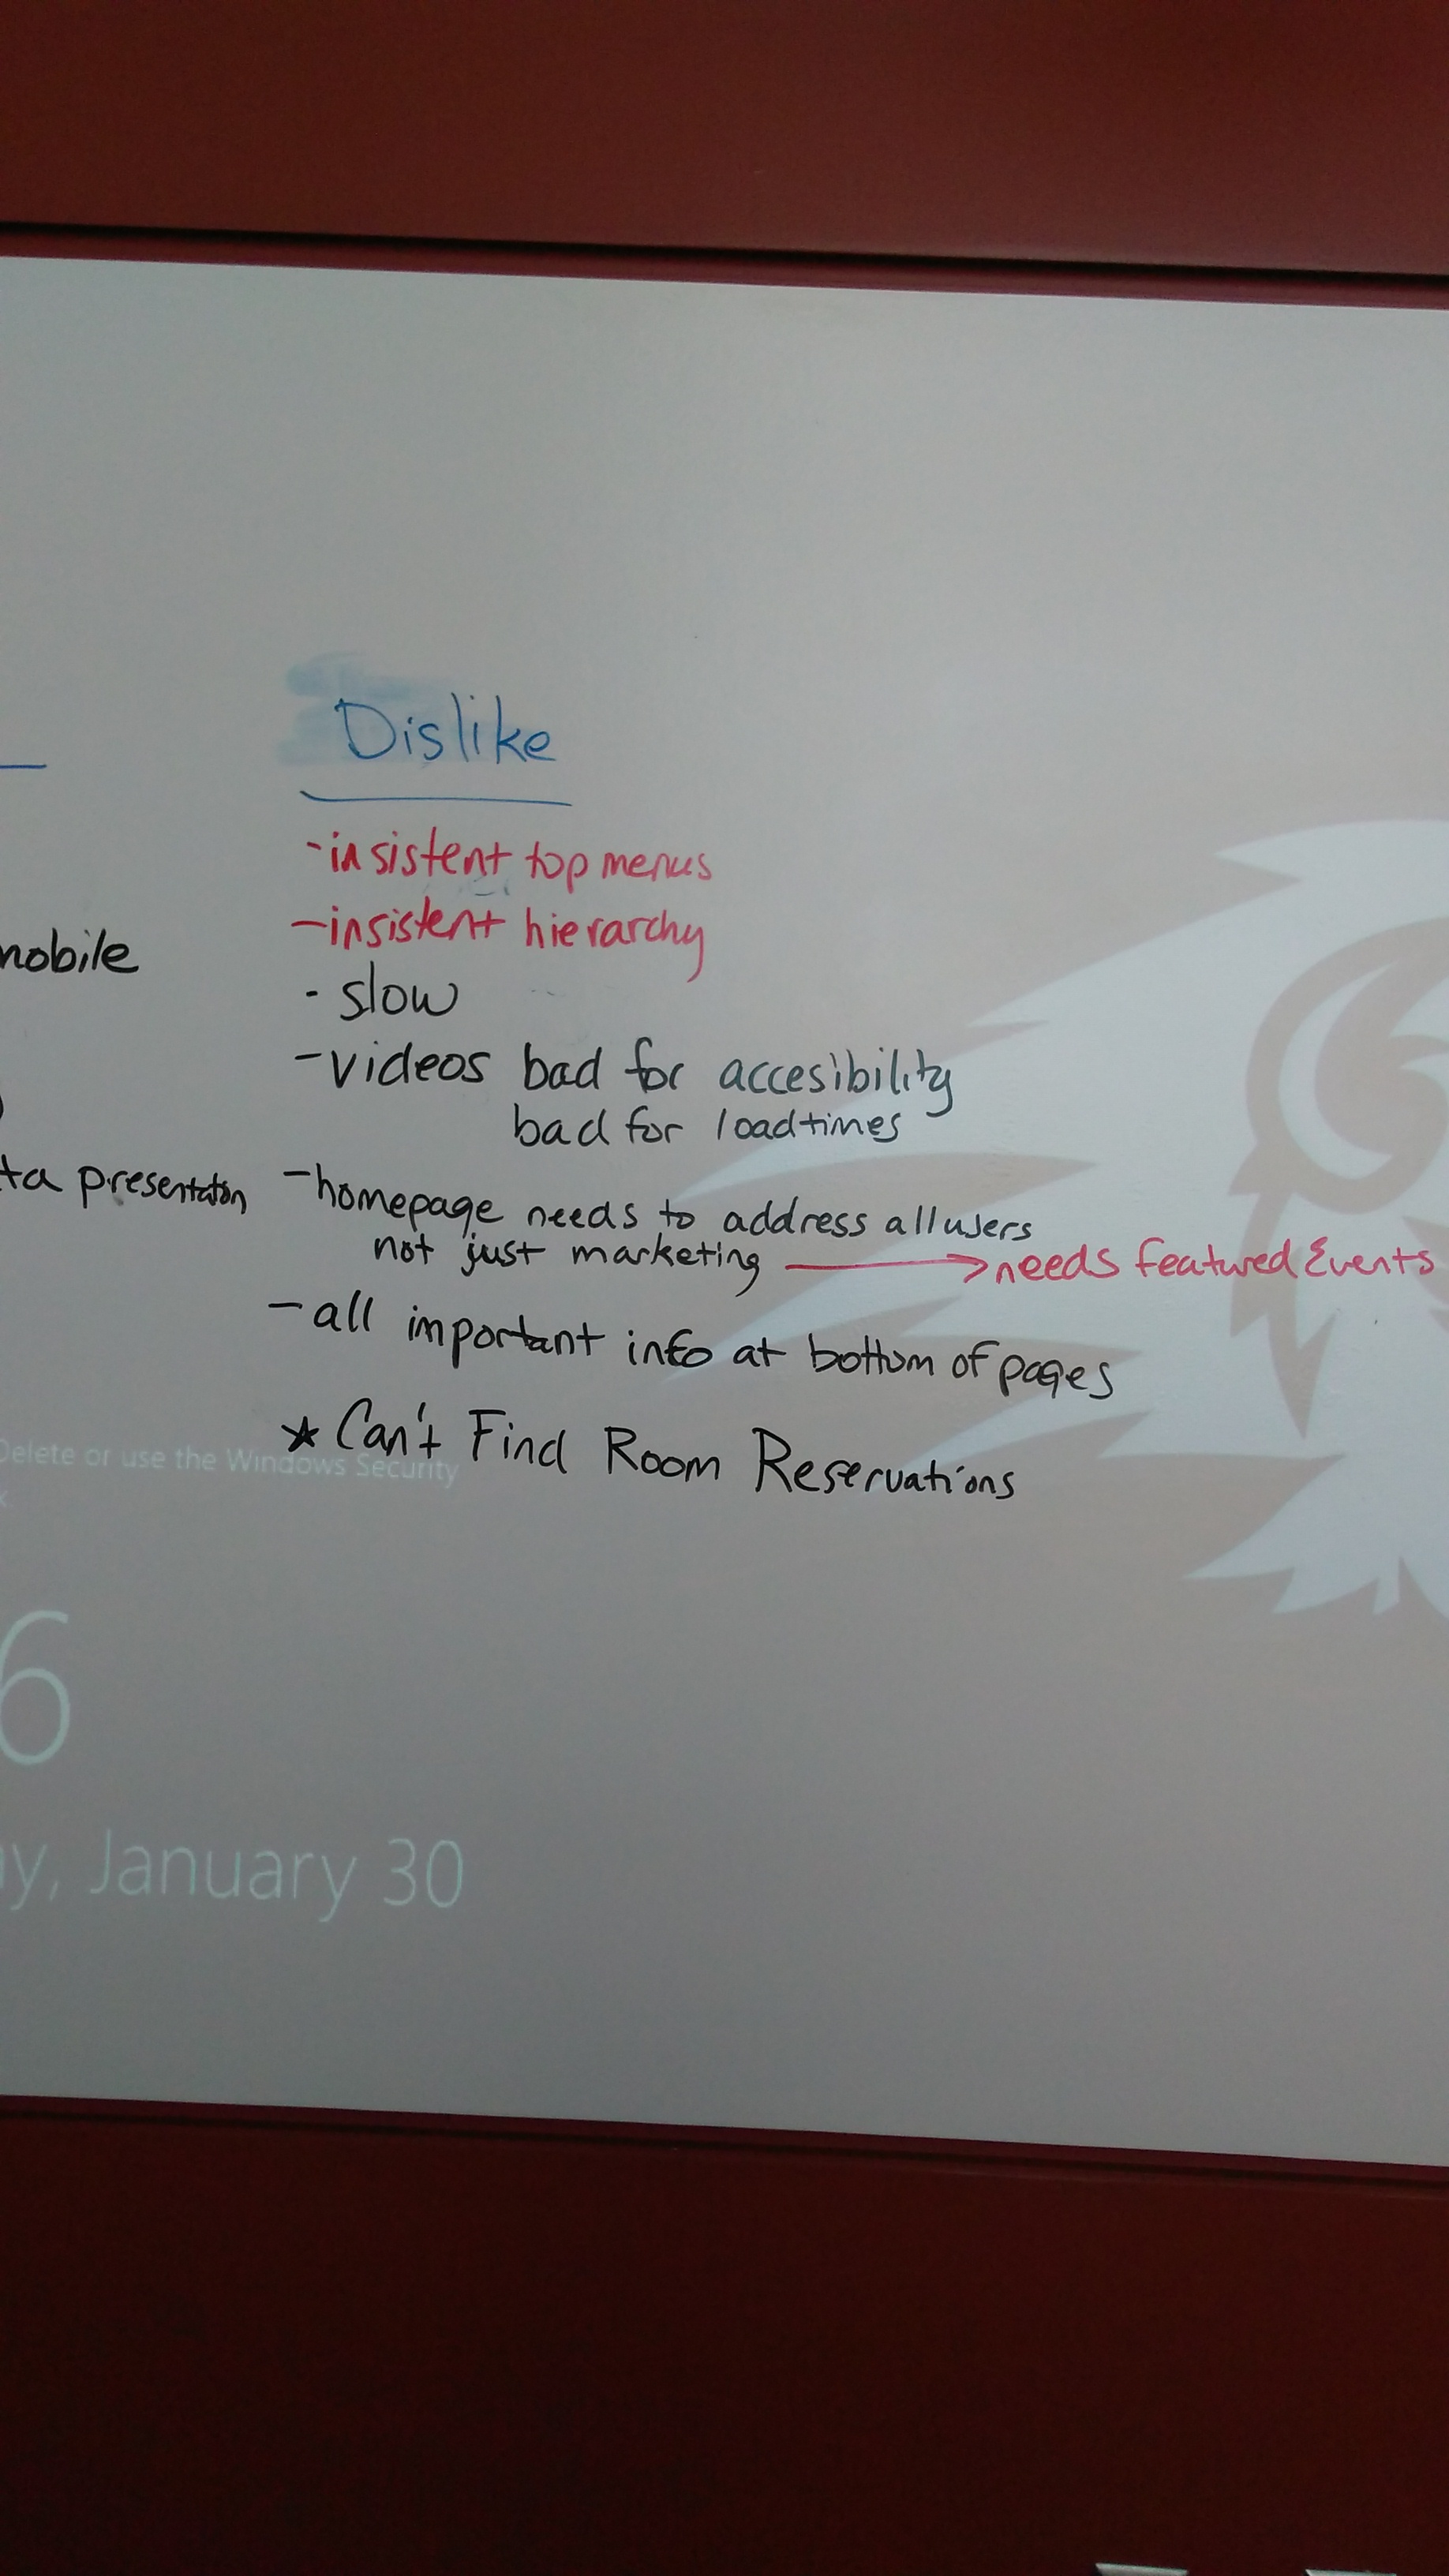 Dislike
-insistent top menus
-insistent hierarchy
mobile
- slow
-videos bad for accesibility
bad for loadtimes
ta presentation
-homepage needs to address all users
not just marketing → needs featured Events
-all important info at bottom of pages
* Can't Find Room Reservations
Delete or use the Windows Security
6
y, January 30